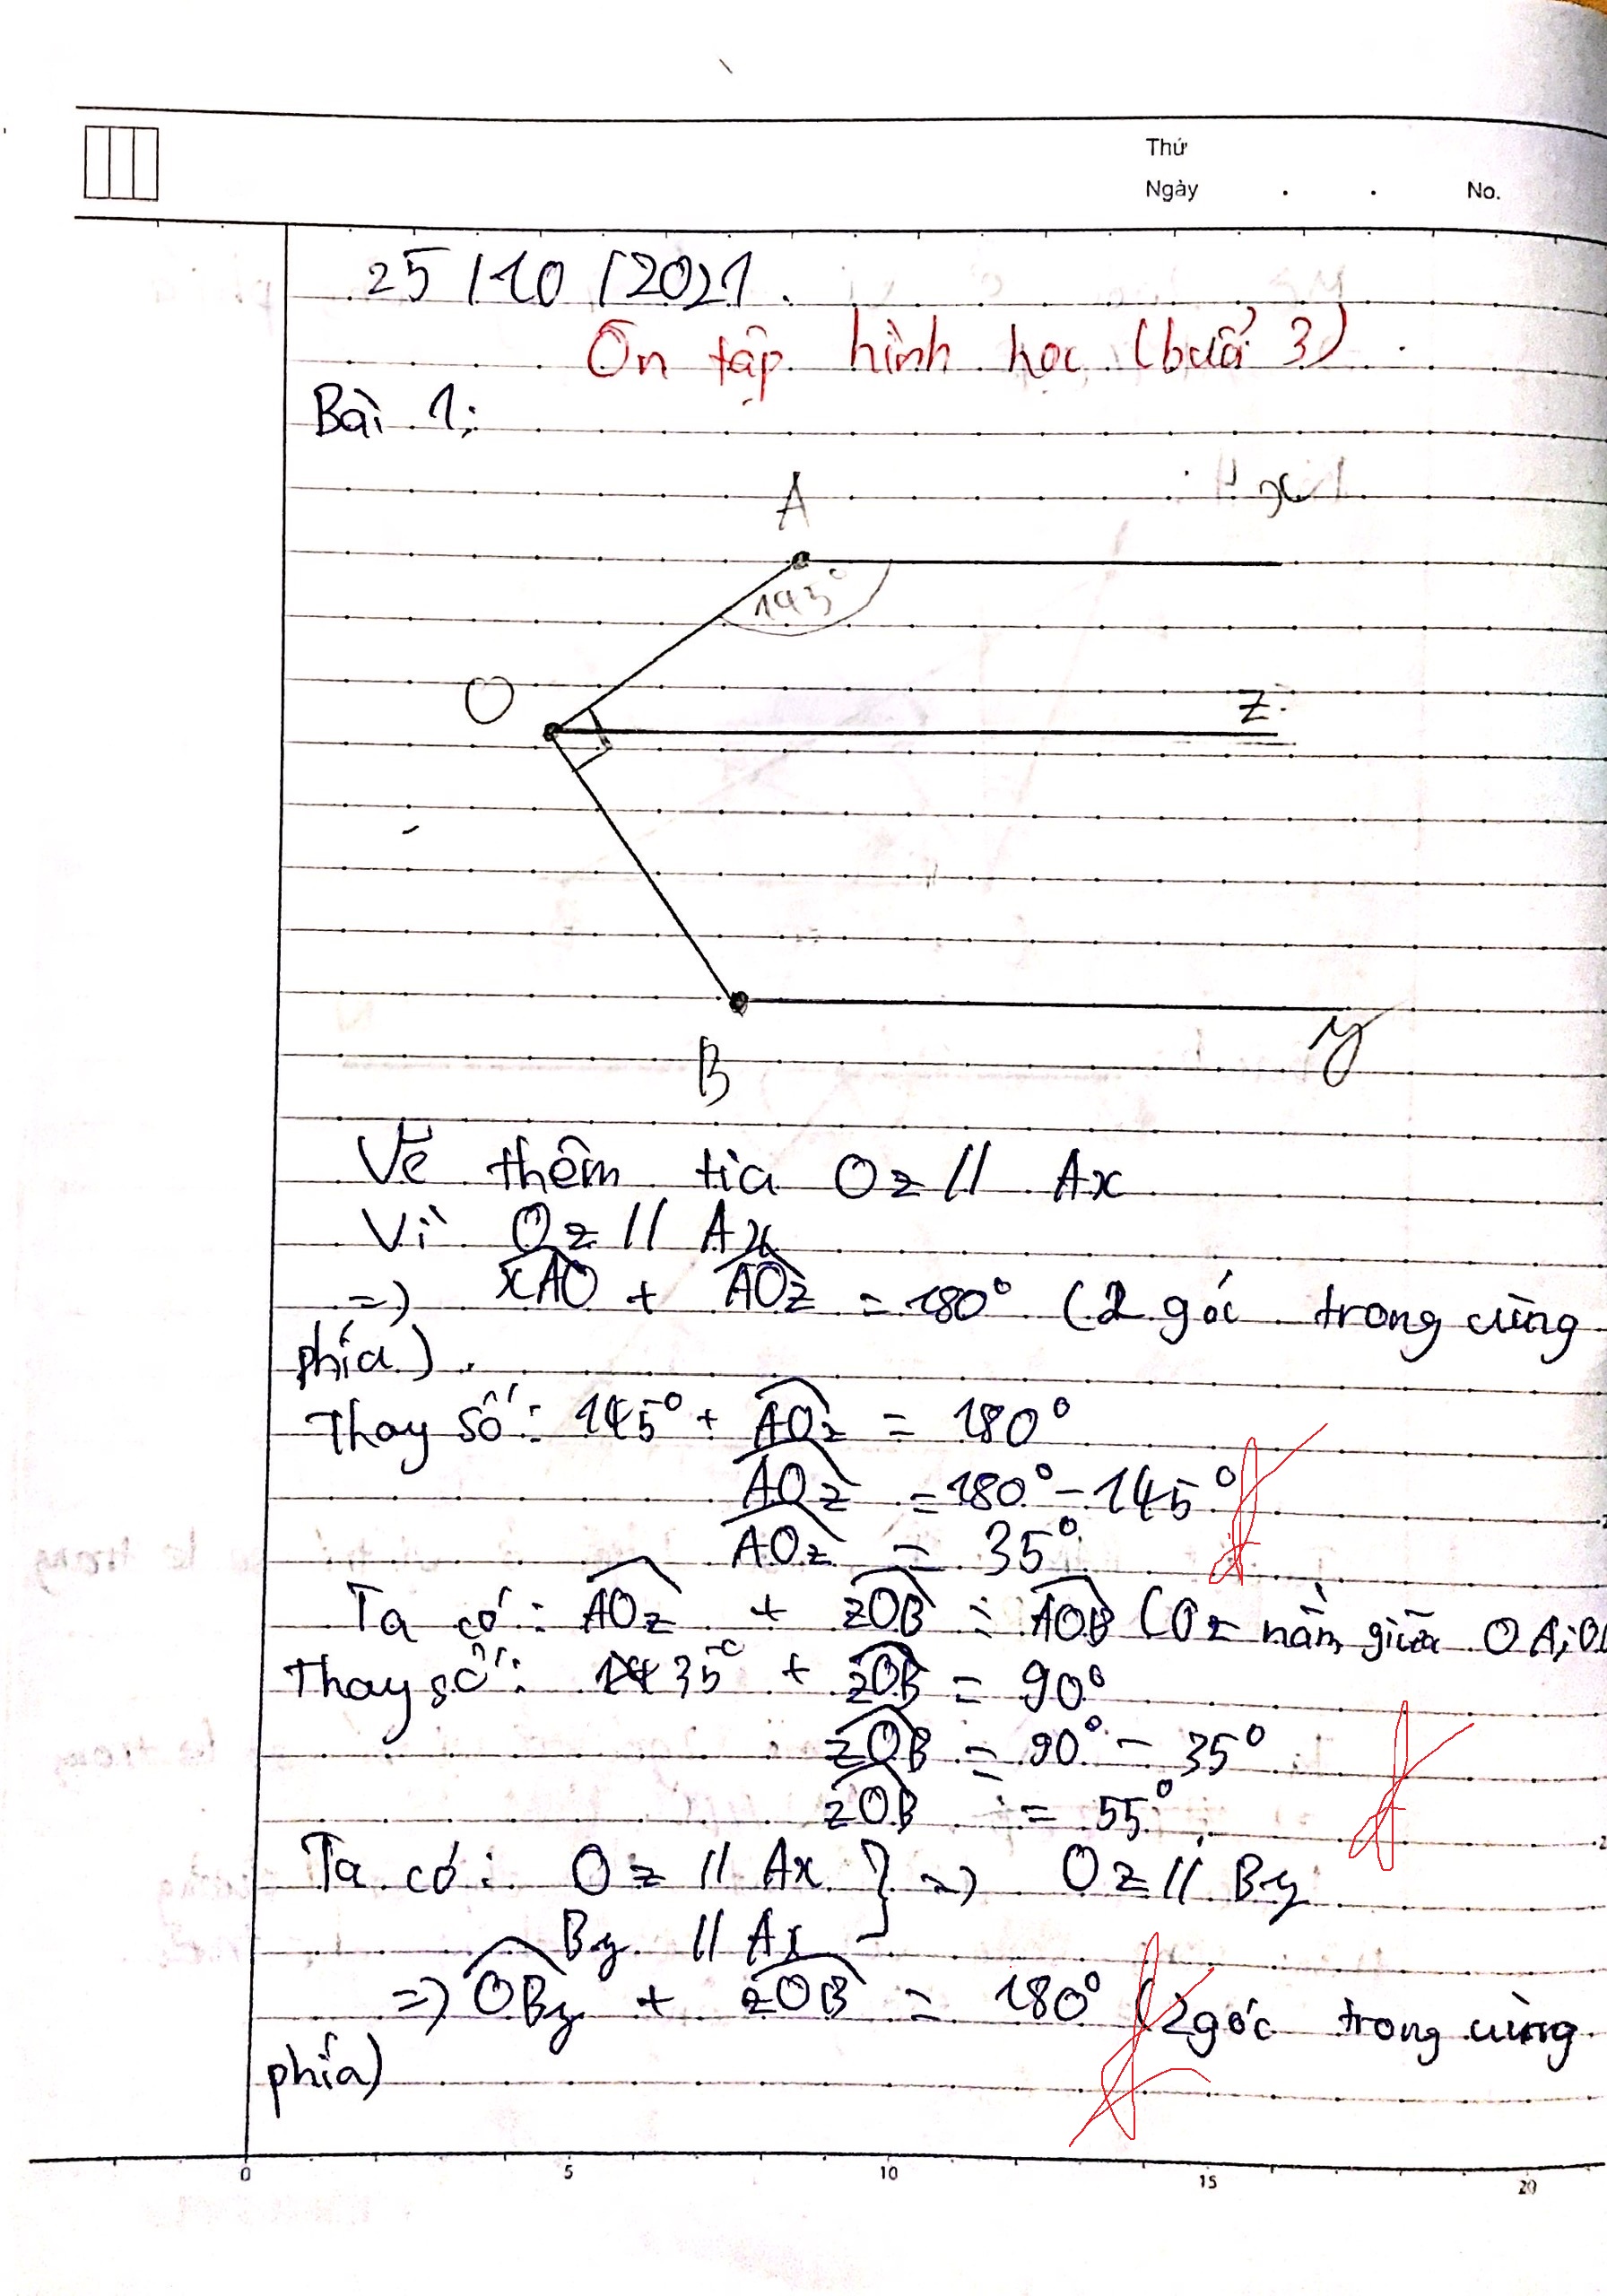 Thứ
Ngày . . No.
25/10/2021.
Ôn tập hình học (buổi 3).
Bài 1:
A
145°
O
z
B
y
Vẽ thêm tia Oz // Ax
Vì Oz // Ax
=> xAO + AOz = 180° (2 góc trong cùng
phía).
Thay số: 145° + AOz = 180°
AOz = 180° - 145°
AOz = 35°
Ta có: AOz + zOB = AOB (Oz nằm giữa OA;
Thay số: 35° + zOB = 90°
zOB = 90° - 35°
zOB = 55°
Ta có: Oz // Ax } => Oz // By
By // Ax
=> OBy + zOB = 180° (2 góc trong cùng
phía)
0 5 10 15 20